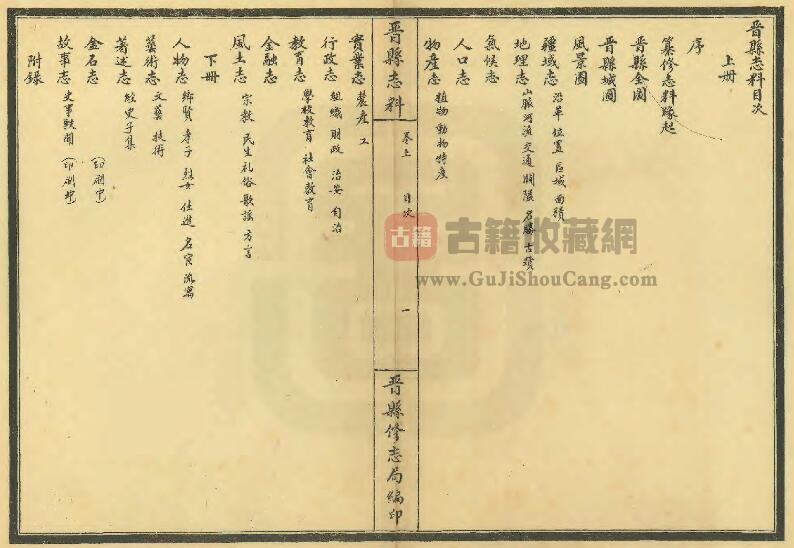 晋縣志料目次
上册
序
纂修志料縁起
晋縣全圖
晋縣城圖
風景圖
疆域志 沿革 位置 區域 面積
地理志 山脈 河流 交通 關隘 名勝 古蹟
氣候志
人口志
物産志 植物 動物 特産
晋縣志料
卷上
目次
一
晋縣修志局編印
實業志 農産 工
行政志 組織 財政 治安 自治
教育志 學校教育 社會教育
金融志
風土志 宗教 民生 礼俗 歌謡 方言
下册
人物志 鄉賢 孝子 烈女 仕進 名宦 流寓
藝術志 文藝 技術
著述志 經史子集
金石志 (印刷中)
故事志 史事軼聞 (印刷中)
附錄
古籍
古籍收藏網
www.GuJiShouCang.com